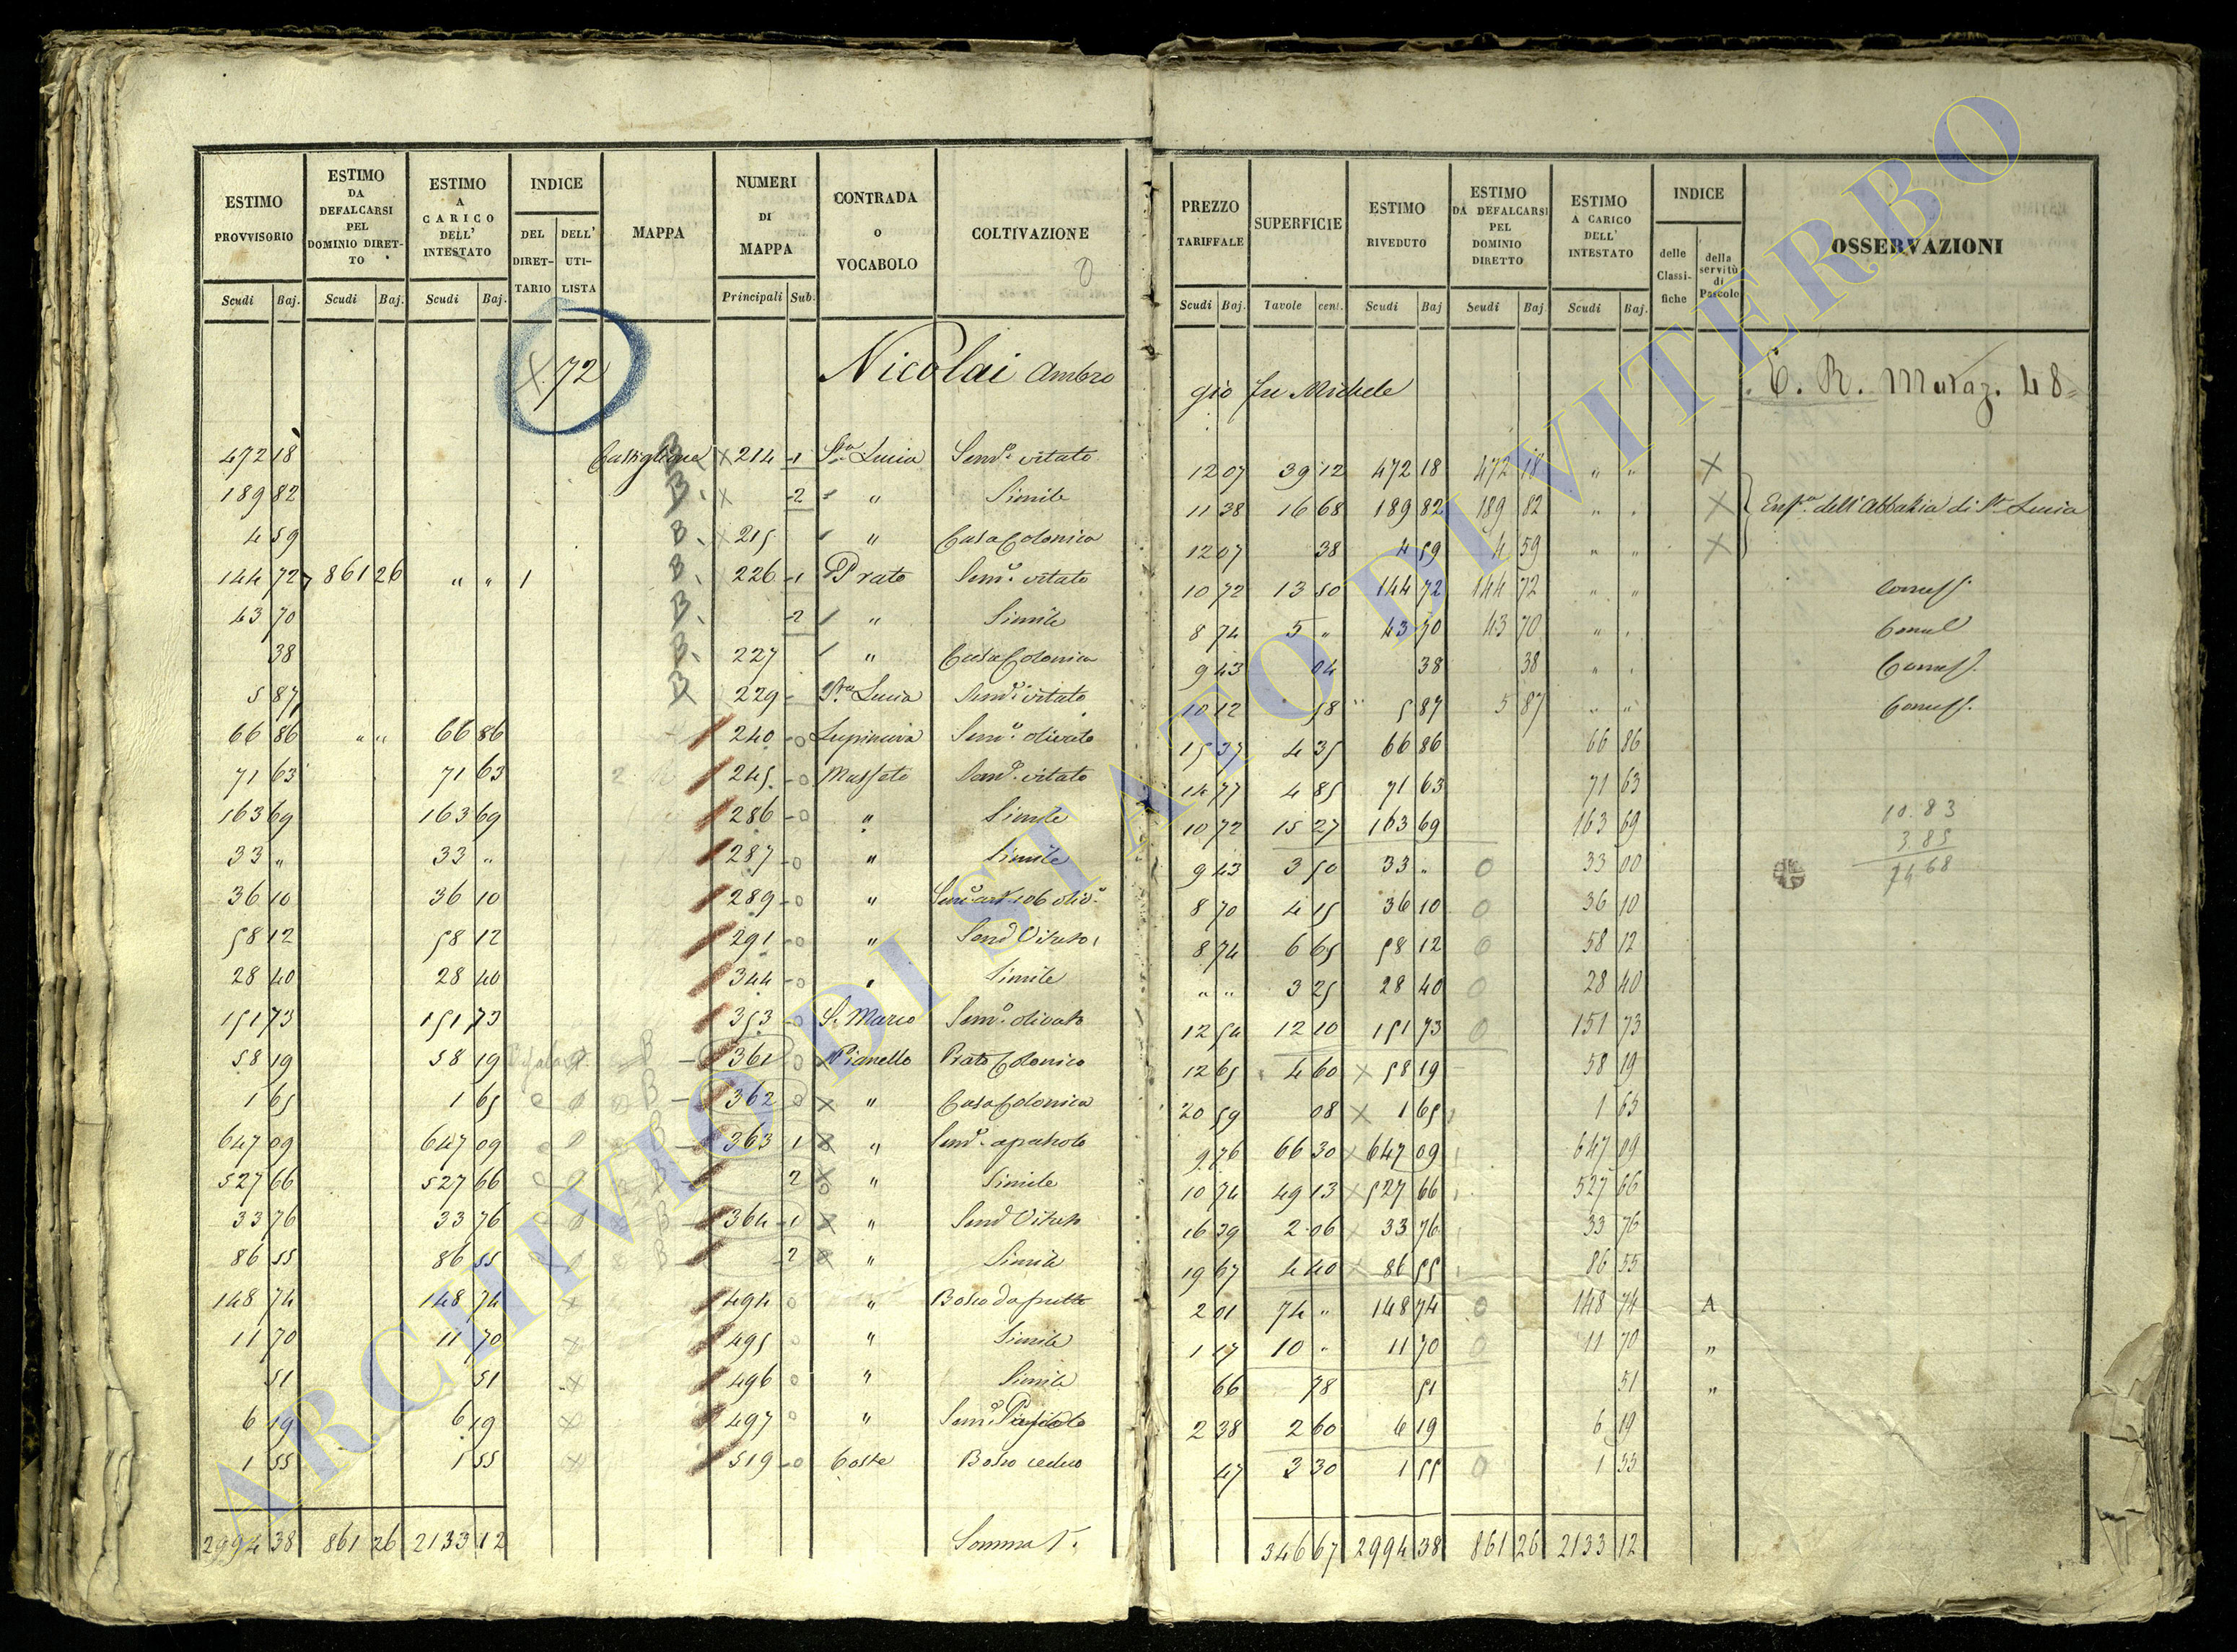 ESTIMO PROVVISORIO
ESTIMO DA DEFALCARSI PEL DOMINIO DIRETTO
ESTIMO A CARICO DELL' INTESTATO
INDICE DEL DIRETTARIO DELL' UTILISTA
MAPPA
NUMERI DI MAPPA
CONTRADA O VOCABOLO
COLTIVAZIONE
PREZZO TARIFFALE
SUPERFICIE
ESTIMO RIVEDUTO
ESTIMO DA DEFALCARSI PEL DOMINIO DIRETTO
ESTIMO A CARICO DELL' INTESTATO
INDICE delle Classifiche della servitù di Pascolo
OSSERVAZIONI
Scudi Baj. Scudi Baj. Scudi Baj. Principali Sub. Scudi Baj. Tavole cent. Scudi Baj Scudi Baj Scudi Baj.
X 72 Nicolai Ambrogio fu Michele E. R. 48
472 18 Castiglione B X 214 1 Sta Lucia Semo vitato 12 07 39 12 472 18 472 18 " " X
189 82 B. X 2 " Simile 11 38 16 68 189 82 189 82 " " X dell'Abbazia di Sta Lucia
4 59 B. X 215 " Casa Colonica 12 07 38 4 59 4 59 " " X
144 72 861 26 " " 1 B. 226 1 Prato Semo vitato 10 72 13 50 144 72 144 72 " "
43 70 B. 2 " Simile 8 74 5 " 43 70 43 70 " "
38 B. 227 " Casa Colonica 9 43 04 38 38 " "
5 87 B 229 Sta Lucia Semo vitato 10 12 58 5 87 5 87 " "
66 86 " " 66 86 240 0 Semo olivato 15 37 4 35 66 86 66 86
71 63 71 63 245 0 Semo vitato 14 77 4 85 71 63 71 63
163 69 163 69 286 0 " Simile 10 72 15 27 163 69 163 69 10.83
33 " 33 " 287 0 " Simile 9 43 3 50 33 " 0 33 00 3.85
36 10 36 10 289 0 " 8 70 4 15 36 10 0 36 10 68
58 12 58 12 291 0 " Semo Vitato 8 74 6 65 58 12 0 58 12
28 40 28 40 344 0 " Simile " " 3 25 28 40 0 28 40
151 73 151 73 353 0 S. Marco Semo olivato 12 54 12 10 151 73 0 151 73
58 19 58 19 B 361 0 Pianello Prato Colonico 12 65 4 60 X 58 19 58 19
1 65 1 65 B 362 0 X " Casa Colonica 20 59 08 X 1 65 1 65
647 09 647 09 B 363 1 X " 9 76 66 30 X 647 09 647 09
527 66 527 66 B 2 X " Simile 10 74 49 13 X 527 66 527 66
33 76 33 76 B 364 1 X " Semo Vitato 16 39 2 06 X 33 76 33 76
86 55 86 55 B 2 X " Simile 19 67 4 40 X 86 55 86 55
148 74 148 74 X 494 0 " Bosco da frutto 2 01 74 " 148 74 0 148 74 A
11 70 11 70 X 495 0 " Simile 1 17 10 " 11 70 0 11 70 "
51 51 X 496 0 " Simile 66 78 51 51 "
6 19 6 19 X 497 0 " 2 38 2 60 6 19 6 19
1 55 1 55 X 519 0 Coste Bosco ceduo 47 3 30 1 55 0 1 55
2994 38 861 26 2133 12 Somma 346 67 2994 38 861 26 2133 12
ARCHIVIO DI STATO DI VITERBO